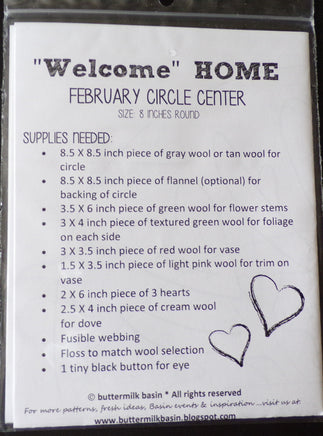 "Welcome" HOME
FEBRUARY CIRCLE CENTER
SIZE: 8 INCHES ROUND
SUPPLIES NEEDED:
• 8.5 X 8.5 inch piece of gray wool or tan wool for
circle
• 8.5 X 8.5 inch piece of flannel (optional) for
backing of circle
• 3.5 X 6 inch piece of green wool for flower stems
• 3 X 4 inch piece of textured green wool for foliage
on each side
• 3 X 3.5 inch piece of red wool for vase
• 1.5 X 3.5 inch piece of light pink wool for trim on
vase
• 2 X 6 inch piece of 3 hearts
• 2.5 X 4 inch piece of cream wool
for dove
• Fusible webbing
• Floss to match wool selection
• 1 tiny black button for eye
© buttermilk basin * All rights reserved
For more patterns, fresh ideas, Basin events & inspiration ...visit us at.
www.buttermilkbasin.blogspot.com